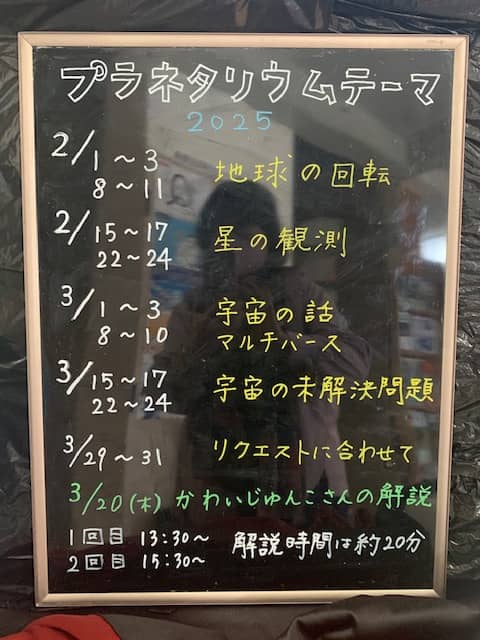 プラネタリウムテーマ
2025
2/1～3 地球の回転
8～11
2/15～17 星の観測
22～24
3/1～3 宇宙の話
8～10 マルチバース
3/15～17 宇宙の未解決問題
22～24
3/29～31 リクエストに合わせて
3/20(木) かわいじゅんこさんの解説
1回目 13:30～ 解説時間は約20分
2回目 15:30～